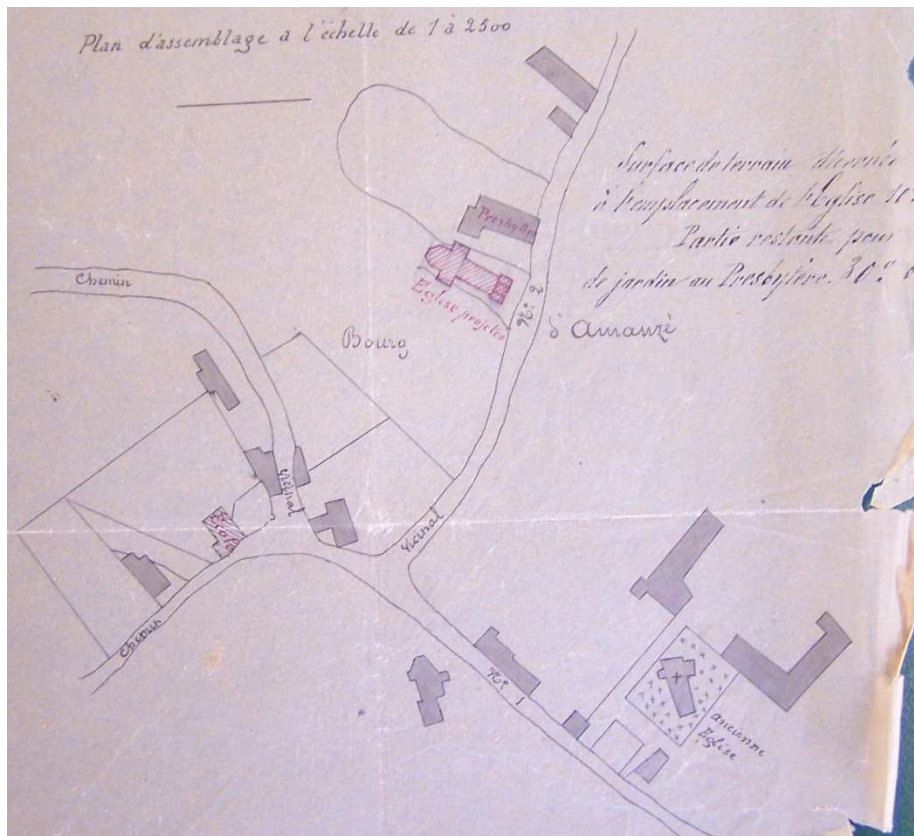 Plan d'assemblage a l'échelle de 1 à 2500
Surface de terrain
à l'emplacement de l'Eglise
Partie restante pour
de jardin au Presbytère.
Presbytère
Eglise projetée
N° 2
St Amanzé
Chemin
Bourg
Vicinal
Ecole
Vicinal
Chemin
N° 1
ancienne
Eglise